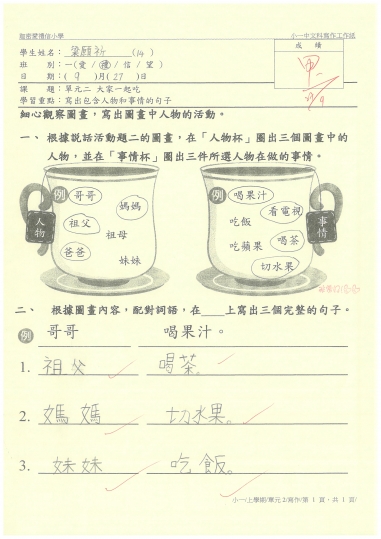 小一中文科寫作工作紙
學生姓名：梁願祈(14)
成績
甲
班　　別：一(愛 / 禮 / 信 / 望)
日　　期：(9)月(27)日
29/9
課　　題：單元二 大家一起吃
學習重點：寫出包含人物和事情的句子
細心觀察圖畫，寫出圖畫中人物的活動。
一、 根據說話活動題二的圖畫，在「人物杯」圈出三個圖畫中的
人物，並在「事情杯」圈出三件所選人物在做的事情。
例 哥哥
媽媽
祖父
祖母
爸爸
妹妹
人物
例 喝果汁
看電視
吃飯
喝茶
吃蘋果
切水果
事情
二、 根據圖畫內容，配對詞語，在____上寫出三個完整的句子。
例 哥哥 喝果汁。
1. 祖父 喝茶。
2. 媽媽 切水果。
3. 妹妹 吃飯。
小一/上學期/單元2/寫作/第 1 頁，共 1 頁/